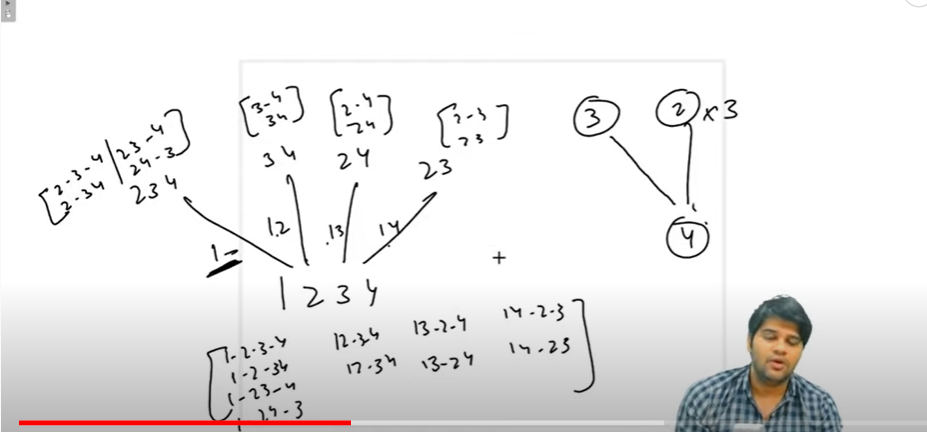 [3-4 [2-4 [2-3
34] 24] 23]
[2-3-4 | 23-4
2-34 | 24-3]
34 24 23
234
3 2 x 3
1.2 .13 14
1-
4
+
1 2 3 4
[1-2-3-4 12-34 13-2-4 14-2-3
1-2-34 12-34 13-24 14-23]
1-23-4
24-3